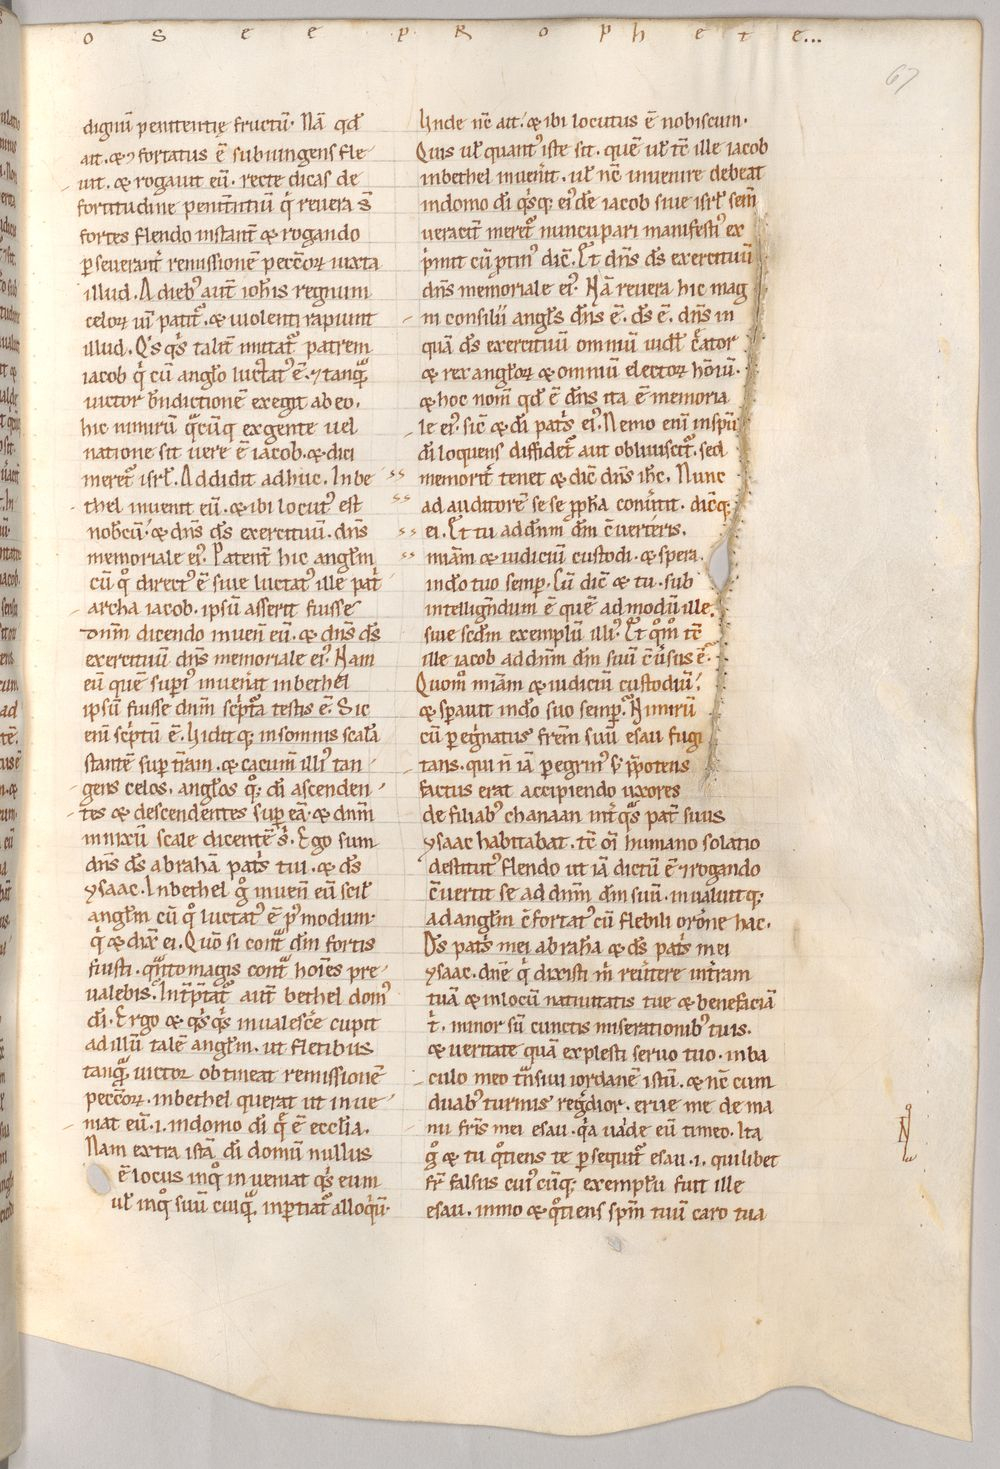 oseę pRophete...
67
dignū penitentię fructū. Nā qd̄
ait. & ꝯfortatus ē subiungens fle-
vit. & rogavit eū. recte dicas de
fortitudine penitentiū q̇ revera s̄
fortes flendo instant̄ & rogando
ꝑseverant̄ remissionē pecc̄oꝝ iuxta
illud. A dieb᷒ aut̄ ioh̄is regnum
celoꝝ vī patit᷒. & violenti rapiunt
illud. Q̇s q̇s talit̄ imitat᷒ patrem
iacob q̇ cū angl̄o luctat᷒ ē. ⁊ tanquā
victor bn̄dictionē exegit ab eo.
hic nimirū q̄cūq; exgente vel
natione sit vere ē iacob. & dici
meret᷒ isrl̄. Addidit adhuc. In be-
thel invenit eū. & ibi locut᷒ est
nob̄cū. & dn̄s d̄s exercituū. dn̄s
memoriale ei᷒. Patent̄ hic angl̄m
cū q̊ direct᷒ ē sive luctat᷒ ille pat̄-
archa iacob. ipsū asserit fuisse
dn̄m dicendo inven̄ eū. & dn̄s d̄s
exercituū dn̄s memoriale ei᷒. Nam
eū quē superi᷒ invenerat in bethel
ipsū fuisse dn̄m sc̄pt᷒a testis ē. Sic
enī sc̄ptū ē. Vidit q; in somnis scalā
stantē sup t̄ram. & cacum̄ illi᷒ tan-
gens celos. angl̄os q̊; d̄i ascenden-
tes & descendentes sup eā. & dn̄m
innixū scale dicentē s᷒. Ego sum
dn̄s d̄s abrahā pat̄s tui. & d̄s
ysaac. In bethel g̊ inven̄ eū scil̄
angl̄m cū q̊ luctat᷒ ē p᷒modum.
q̇ & dix̄ ei. Quō si cont᷒ d̄m fortis
fuisti. q̄nto magis cont᷒ hoīes pre-
valebis. Int̄p̄tat᷒ aut̄ bethel dom᷒
d̄i. Ergo & q̇s q̇s invalesc̄e cupit
ad illū talē angl̄m. ut fletibus
tanq̄ victor obtineat remissionē
pecc̄oꝝ. in bethel querat ut inve-
niat eū .i. in domo d̄i q̄ ē eccl̄ia.
Nam extra istā d̄i domū nullus
ē locus in q̊ inveniat q̇s eum
vl̄ in q̊ suū cuiq̄ inꝑtiat᷒ alloq̇ū.
Unde n̄c ait. & ibi locutus ē nobiscum.
Quis vl̄ quant᷒ iste sit. quē vl̄ tc̄ ille iacob
in bethel inven̄it. vl̄ nc̄ invenire debeat
in domo d̄i q̇sq; ei᷒dē iacob sive isrl̄ sem̄
veracit̄ meret᷒ nuncupari manifesti᷒ ex
p̄mit cū ptin᷒ dic̄. Et dn̄s d̄s exercituū
dn̄s memoriale ei᷒. Nā revera hic mag
ni consilii angl̄s dn̄s ē. d̄s ē. dn̄s in
quā d̄s exercituū omniū videl̄ c̄ator
& rex angl̄oꝝ & omniū electoꝝ hōiū.
& hoc nom̄ qd̄ ē dn̄s ita ē memoria
le ei᷒. sic̄ & d̄i pat̄s ei᷒. Nemo enī in spū
d̄i loquens diffidet᷒ aut obliviscit᷒. sed
memorit̄ tenet & dic̄ dn̄s ih̄c. Nunc
ad auditorē se se ꝓph̄a convertit. dic̄q;
ei. Et tu ad dn̄m d̄m c̄verteris.
miām & iudiciū custodi. & spera
in d̄o tuo semp̄. Cū dic̄ & tu. sub
intelligēdum ē quē ad modū ille.
sive scd̄m exemplū illi᷒. Et q̊m̊ tc̄
ille iacob ad dn̄m d̄m suū c̄v̄sus ē.
Quom̊ miām & iudiciū custodiū?
& sꝑavit in d̄o suo semp̄. Nimirū
cū peregrinatus frēm suū esau fugi
tans. qui n̄ iā peregrin᷒ s; p̄potens
factus erat accipiendo uxores
de filiab᷒ chanaan int̄ q̄s pat̄ suus
ysaac habitabat. tc̄ oī humano solatio
destitut᷒ flendo ut iā dictū ē ⁊ rogando
c̄vertit se ad dn̄m d̄m suū. invaluitq;
ad angl̄m c̄fortat᷒ cū flebili oŕone hac.
D̄s pat̄s mei abrahā & d̄s pat̄s mei
ysaac. dn̄e q̇ dixisti m̄ revertere in t̄ram
tuā & in locū nativitatis tue & benefaciā
t̄. minor sū cunctis miserationib᷒ tuis.
& veritate quā explesti servo tuo. in ba
culo meo t̄nsivi iordanē istū. & nc̄ cum
duab᷒ turmis regredior. erue me de ma
nu fr̄is mei esau. q̇a valde eū timeo. Ita
g̊ & tu q̊tiens te ꝑsequit᷒ esau .i. quilibet
fr̄ falsus cui᷒cūq; exemplū fuit ille
esau. immo & q̊tiens spm̄ tuū caro tua